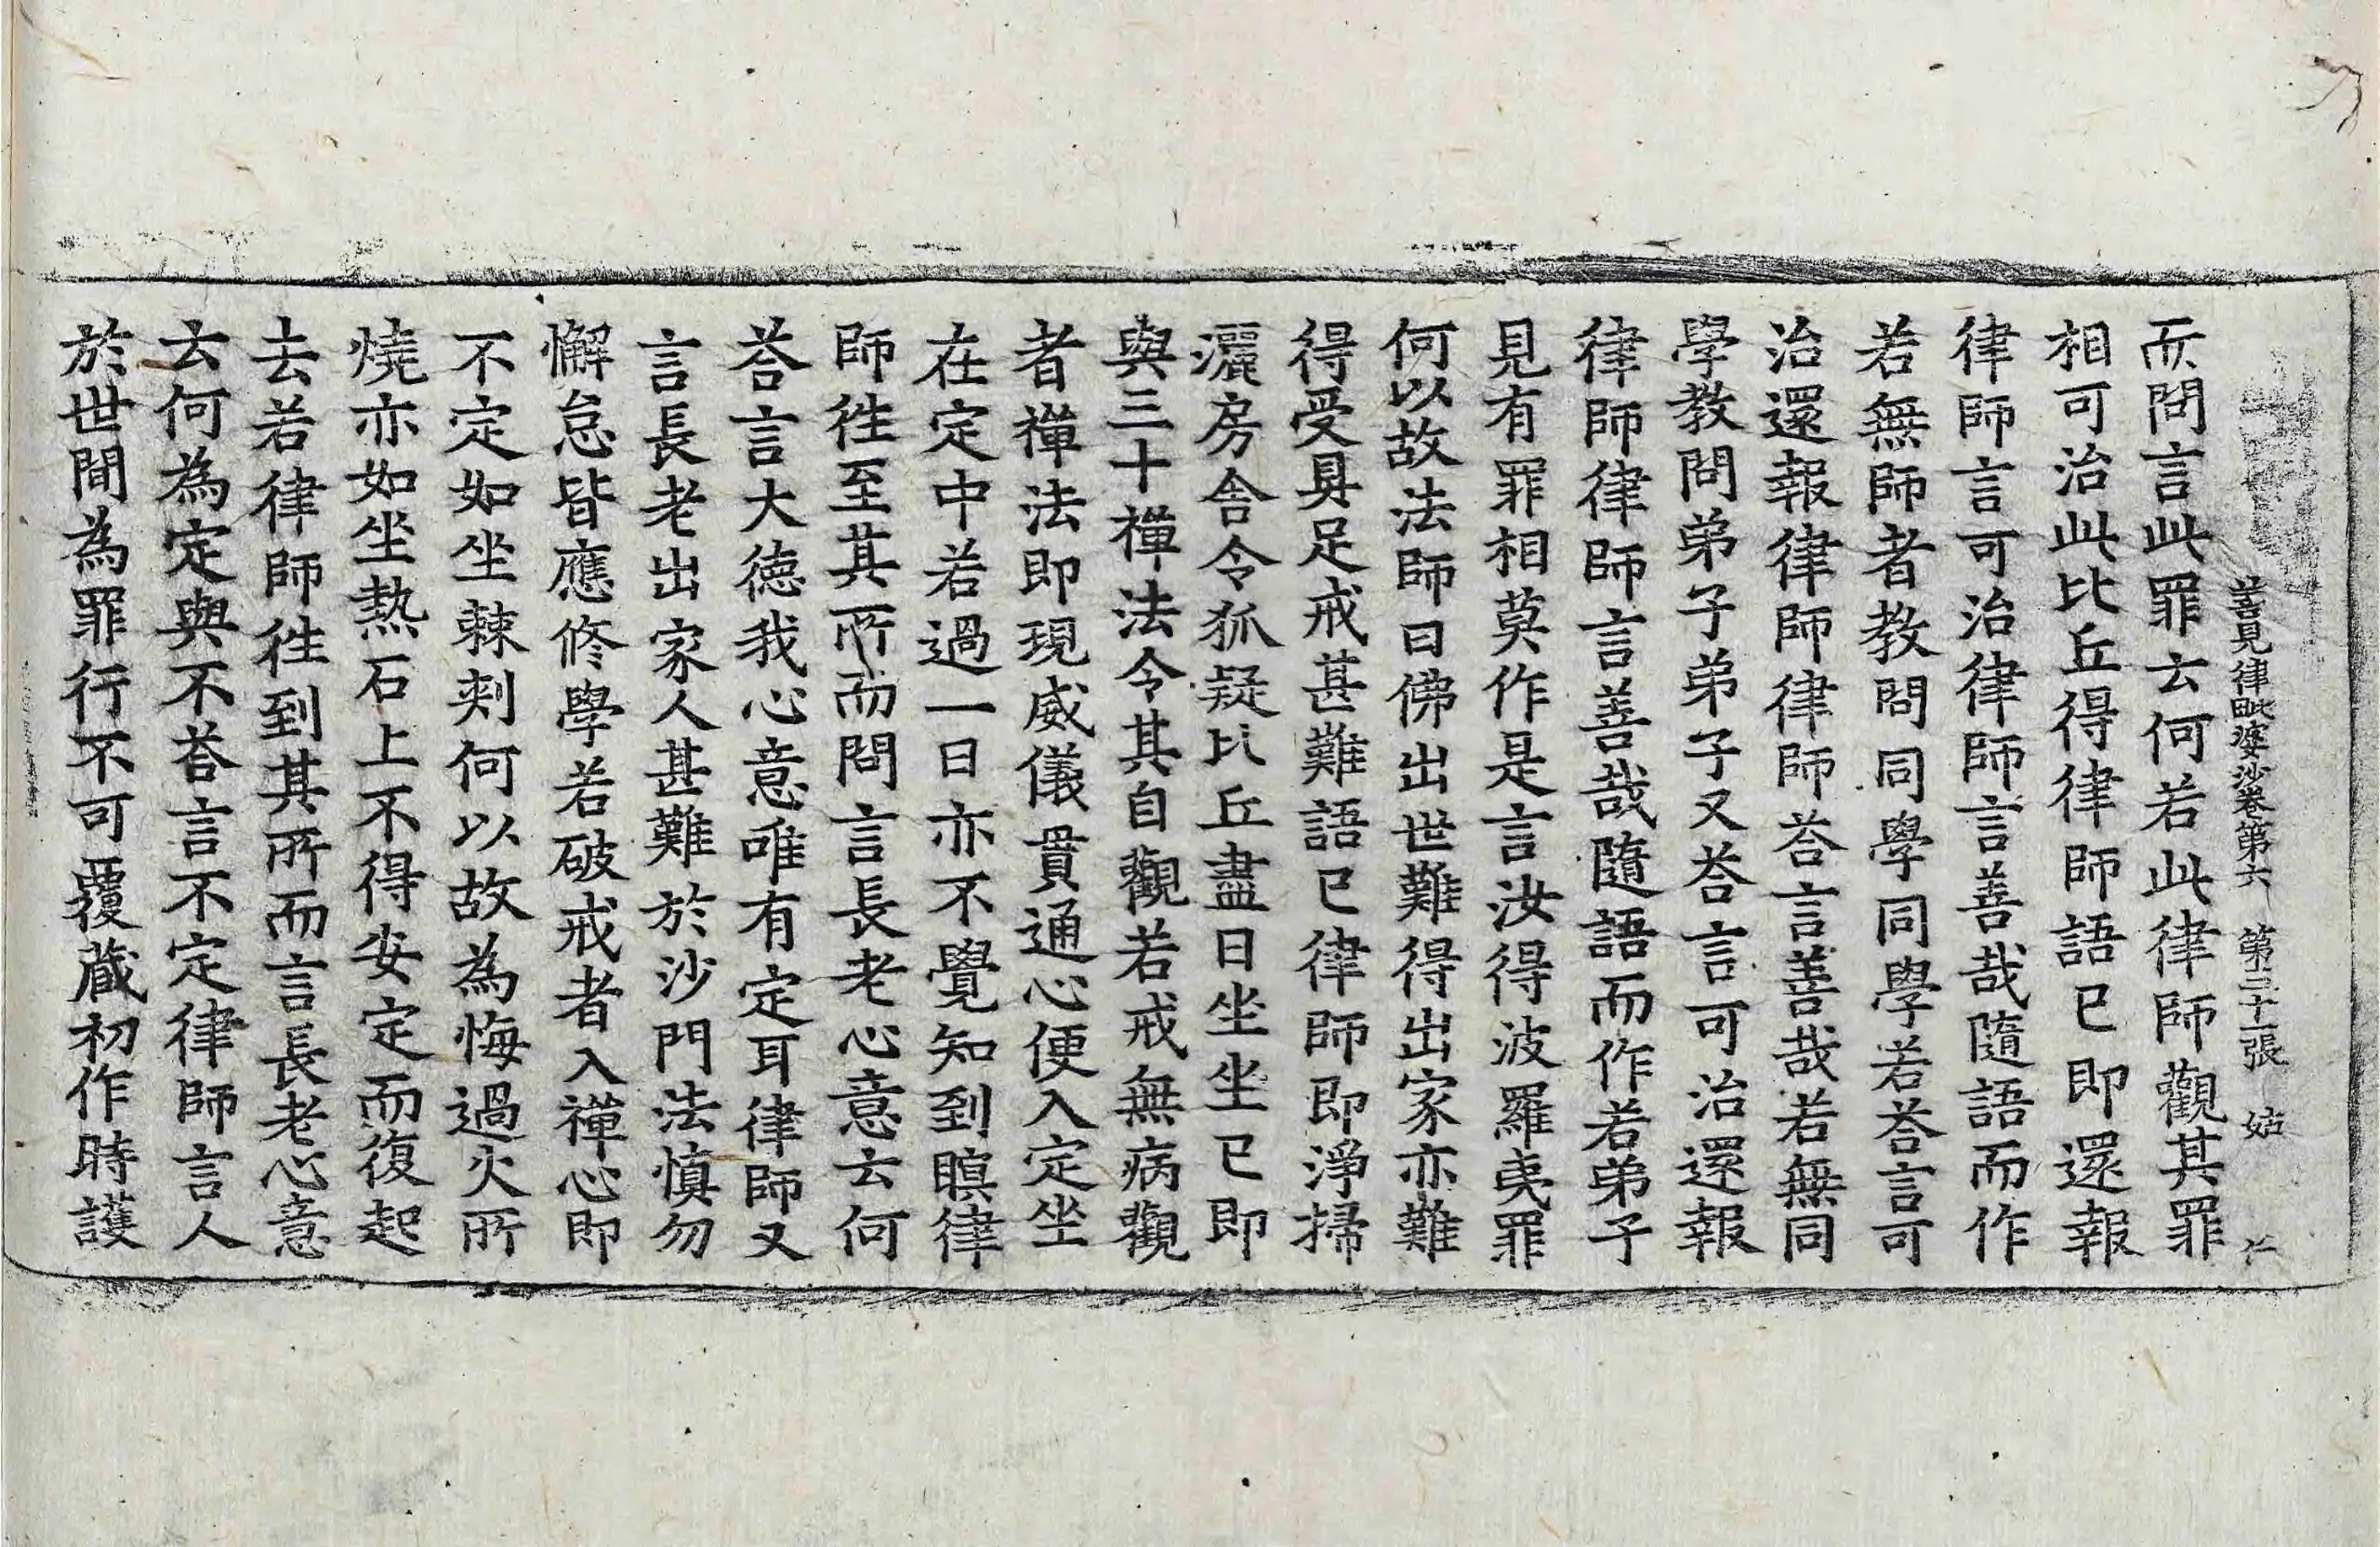 善見律毗婆沙卷第六 第三十一張 姑 仁
而問言此罪云何若此律師觀其罪
相可治此比丘得律師語已即還報
律師言可治律師言善哉隨語而作
若無師者教問同學同學若荅言可
治還報律師律師荅言善哉若無同
學教問弟子弟子又荅言可治還報
律師律師言善哉隨語而作若弟子
見有罪相莫作是言汝得波羅夷罪
何以故法師曰佛出世難得出家亦難
得受具足戒甚難語已律師即淨掃
灑房舍令狐疑比丘盡日坐坐已即
與三十禪法令其自觀若戒無病觀
者禪法即現威儀貫通心便入定坐
在定中若過一日亦不覺知到瞑律
師徃至其所而問言長老心意云何
荅言大德我心意唯有定耳律師又
言長老出家人甚難於沙門法慎勿
懈怠皆應修學若破戒者入禪心即
不定如坐棘刾何以故為悔過火所
燒亦如坐熱石上不得安定而復起
去若律師徃到其所而言長老心意
云何為定與不荅言不定律師言人
於世間為罪行不可覆蔵初作時護